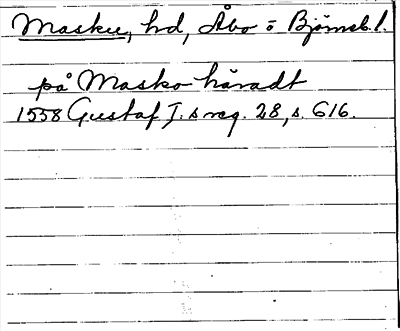 Masku, hd, Åbo o Björneb. l.
på Masko häradt
1558 Gustaf I.s reg. 28, s. 616.